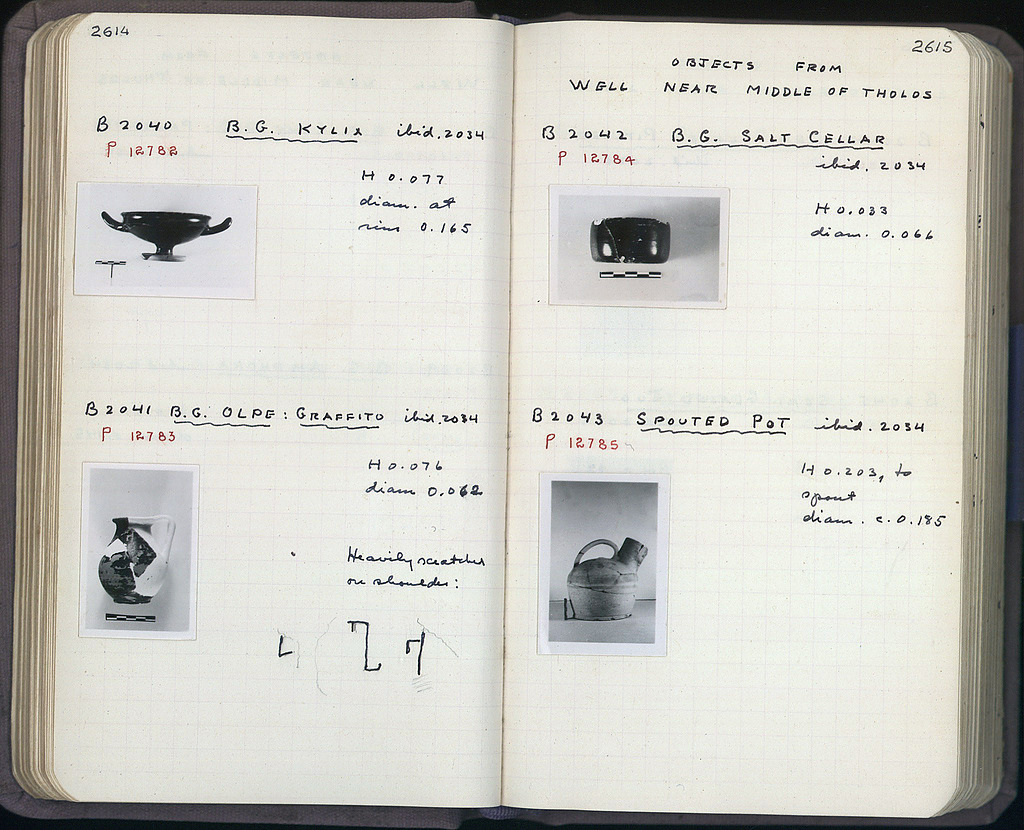 2614
B 2040 B.G. KYLIX ibid. 2034
P 12782
H 0.077
diam. at
rim 0.165
B 2041 B.G. OLPE : GRAFFITO ibid. 2034
P 12783
H 0.076
diam 0.062
Heavily scratched
on shoulder:
2615
OBJECTS FROM
WELL NEAR MIDDLE OF THOLOS
B 2042 B.G. SALT CELLAR
P 12784 ibid. 2034
H 0.033
diam. 0.066
B 2043 SPOUTED POT ibid. 2034
P 12785
H 0.203, to
spout
diam. c. 0.185